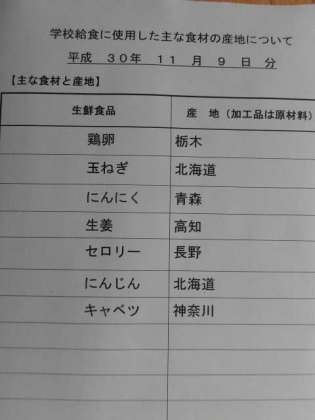 学校給食に使用した主な食材の産地について
平成 30年 11 月 9 日 分
【主な食材と産地】
生鮮食品 産 地（加工品は原材料）
鶏卵 栃木
玉ねぎ 北海道
にんにく 青森
生姜 高知
セロリー 長野
にんじん 北海道
キャベツ 神奈川